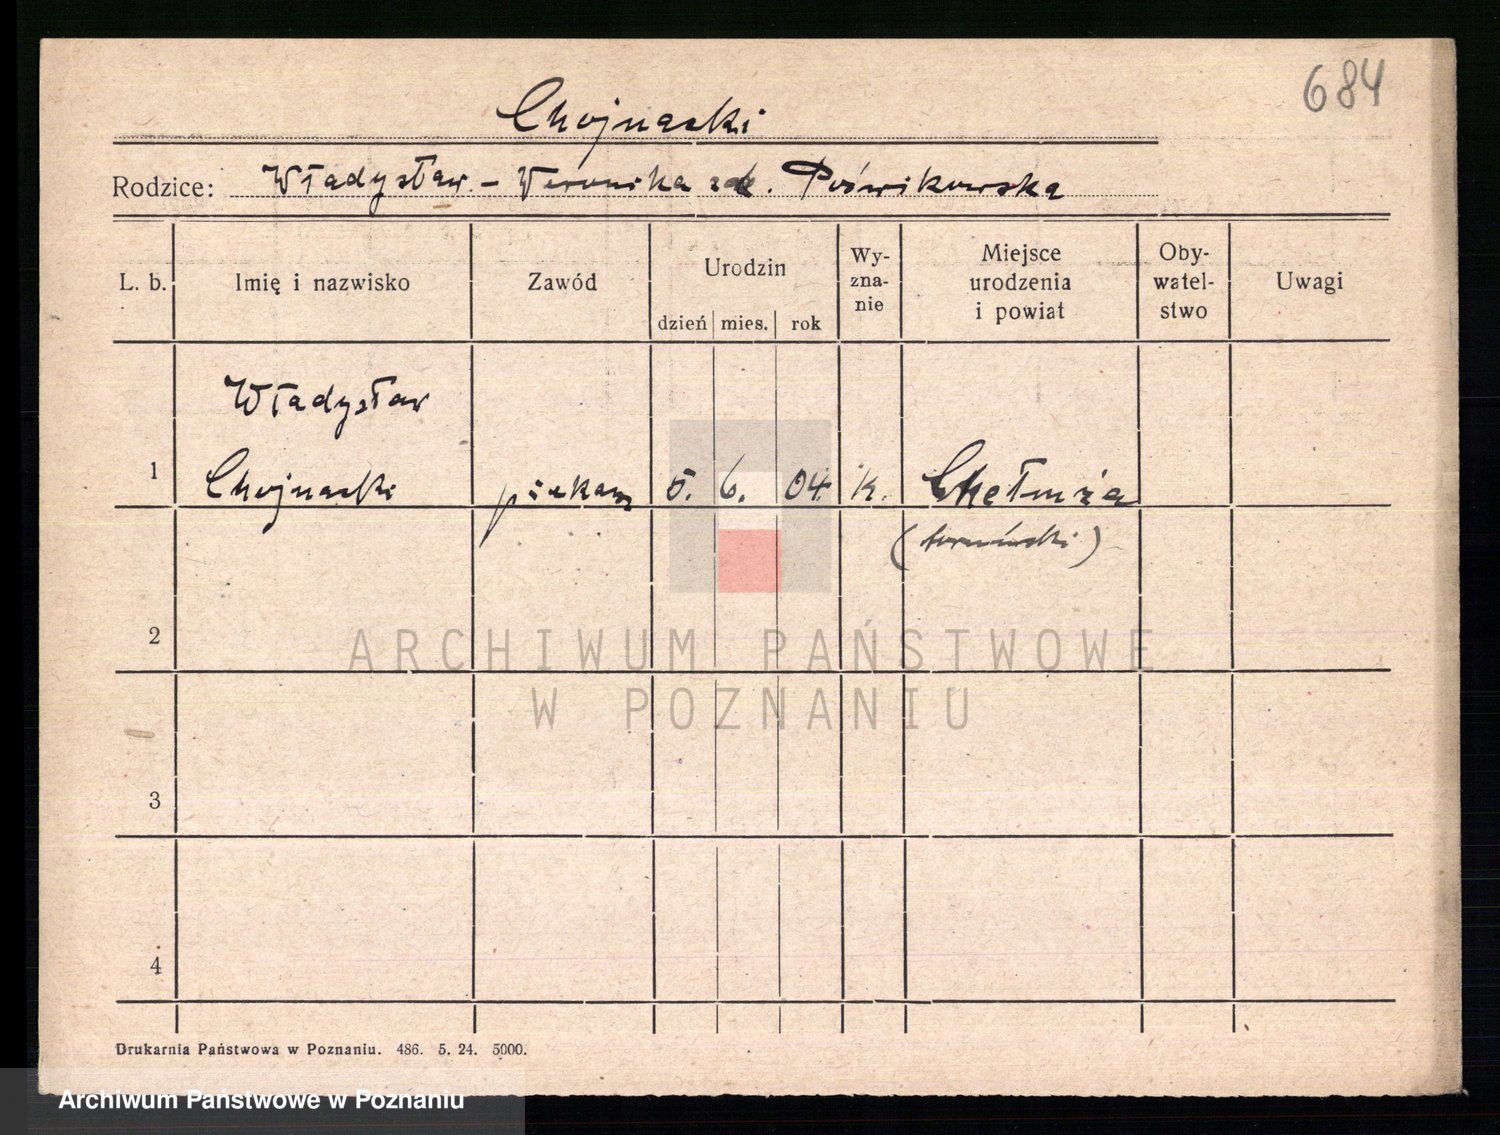 684
Chojnacki
Rodzice: Władysław - Veronika zd. Pośnikowska
L. b.
Imię i nazwisko
Zawód
Urodzin
dzień mies. rok
Wy-
zna-
nie
Miejsce
urodzenia
i powiat
Oby-
watel-
stwo
Uwagi
Władysław
1 Chojnacki piekarz 5. 6. 04 K. Chełmża
(toruński)
2
3
4
ARCHIWUM PAŃSTWOWE
W POZNANIU
Drukarnia Państwowa w Poznaniu. 486. 5. 24. 5000.
Archiwum Państwowe w Poznaniu